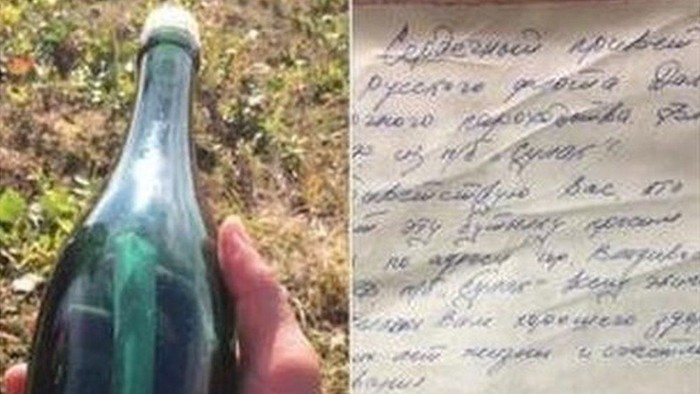 Сердечный привет
русского флота Даль
очного пароходства
из п/б "Сулак".
ветствую вас, кто
эту бутылку просим
по адресу гр. Владив
п/б Сулак всему эки
вам хорошего здо
лет жизни и счастли
вания